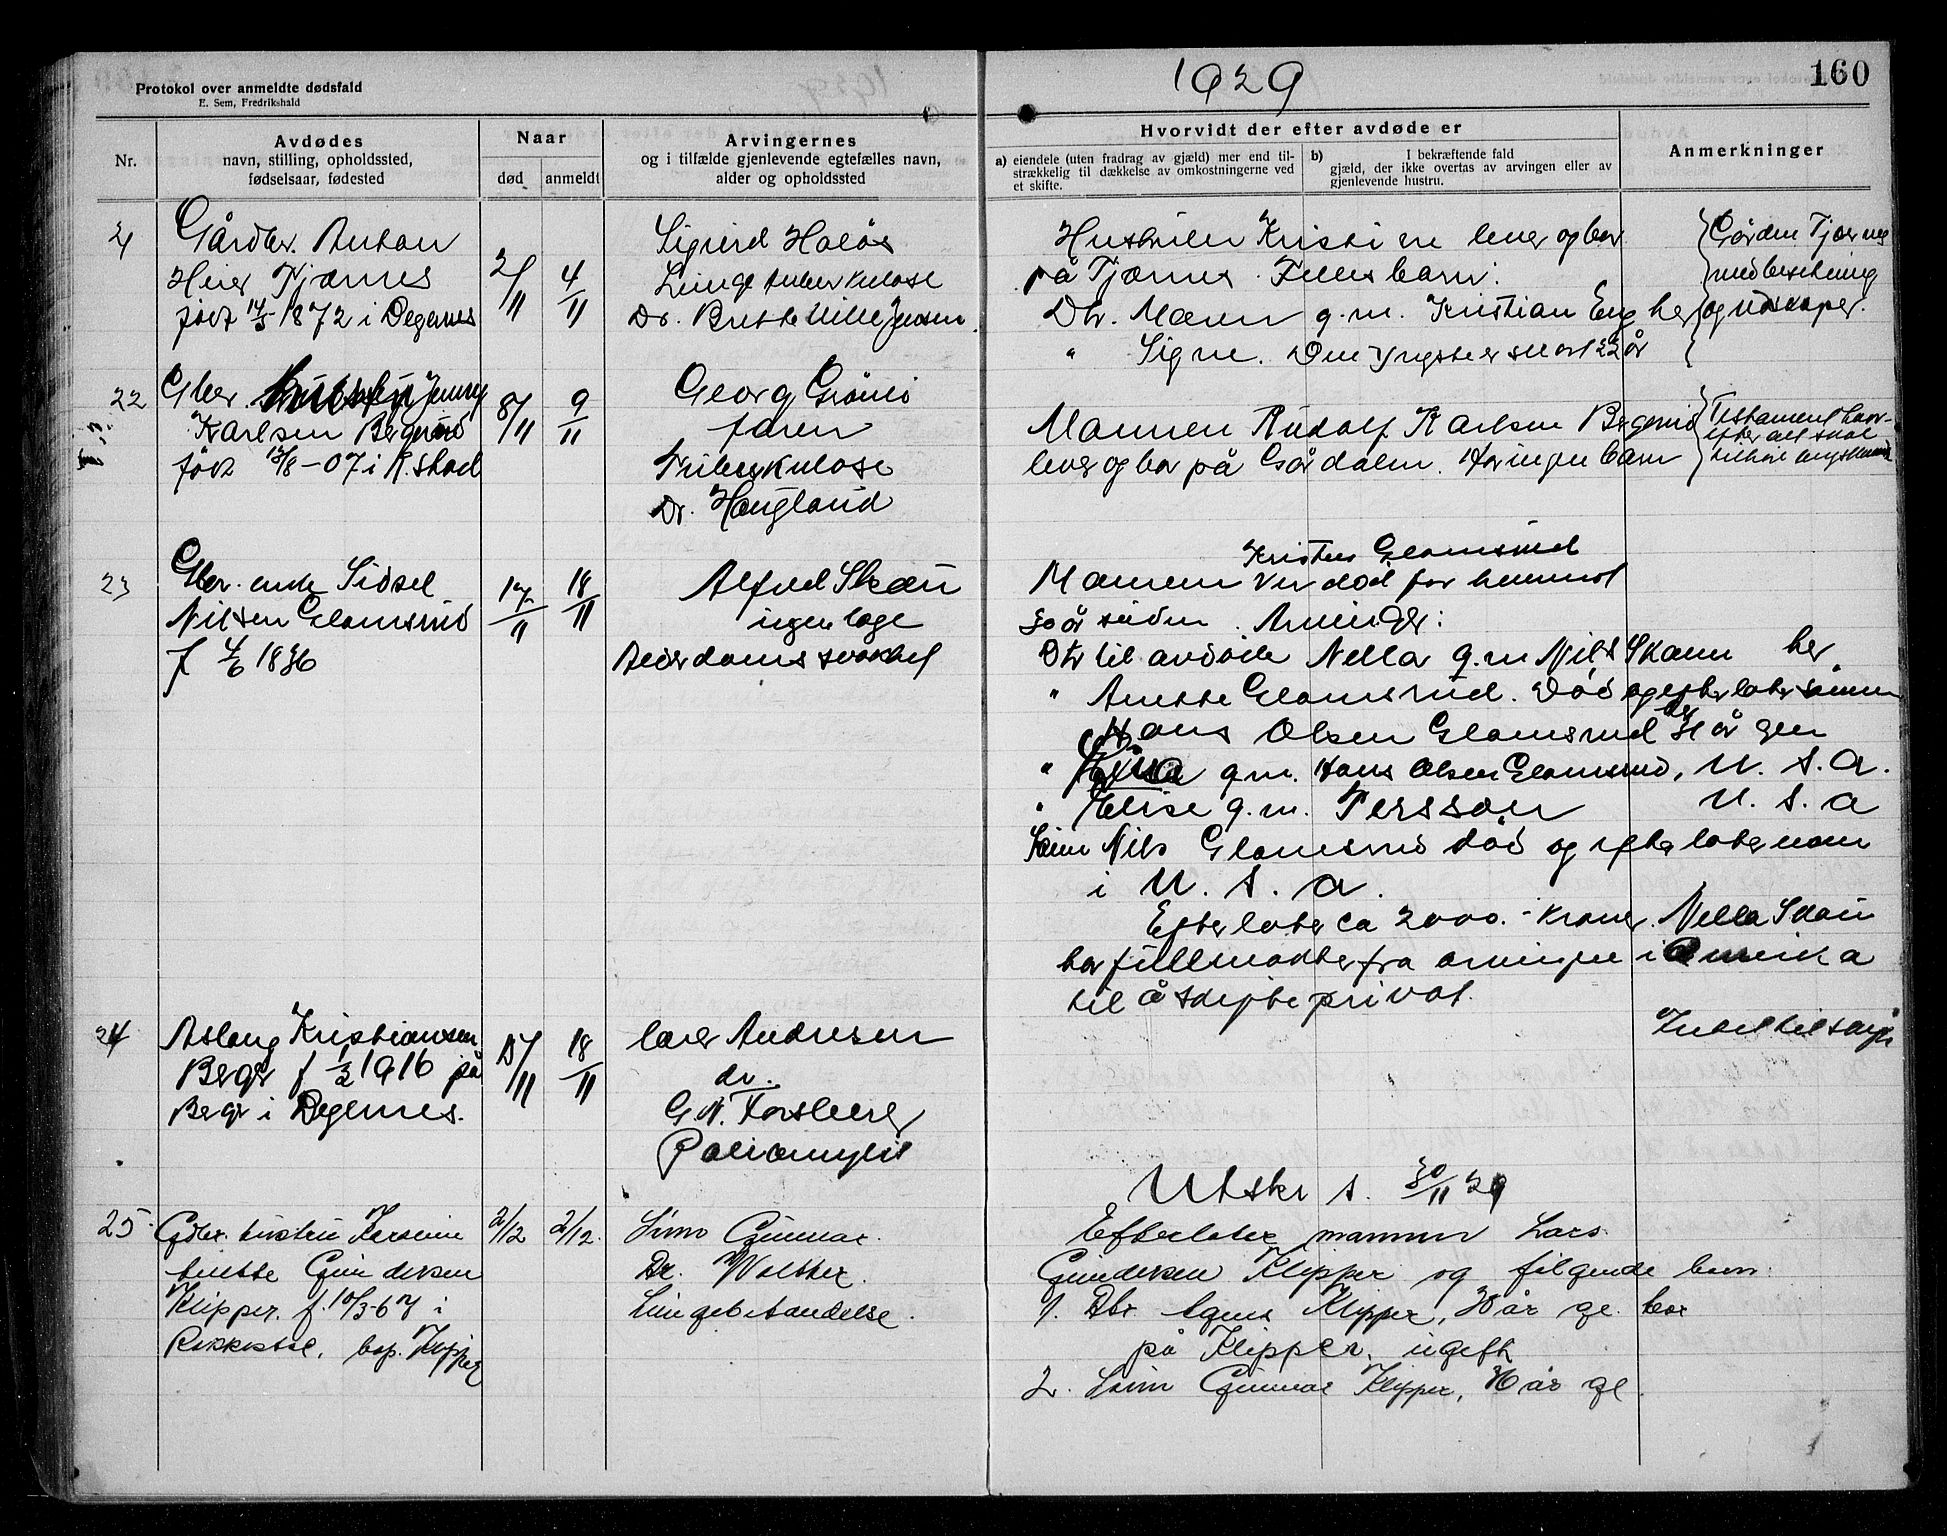 Protokol over anmeldte dødsfald
E. Sem, Fredrikshald
1929
160
Nr.
Avdødes
navn, stilling, opholdssted,
fødselsaar, fødested
Naar
død
anmeldt
Arvingernes
og i tilfælde gjenlevende egtefælles navn,
alder og opholdssted
Hvorvidt der efter avdøde er
a) eiendele (uten fradrag av gjæld) mer end til-
strækkelig til dækkelse av omkostningerne ved
et skifte.
b) I bekræftende fald
gjæld, der ikke overtas av arvingen eller av
gjenlevende hustru.
Anmerkninger
21
Gårdbr. Anton
Heier Tjærnes
født 14/5 1872 i Degernes
2/11
4/11
Sigurd Holøs
Lungetuberkulose
Dr. Jensen
Hustruen Kristine lever og bor
på Tjærnes. Felles barn:
Dtr. Maren g.m. Kristian Eng her
" Signe. Den yngste er snart 22 år
Gården Tjærnes
med besetning
og redskaper.
22
Gbr. Jenny
Karlsen Bergerud
født 13/8-07 i K.stad
8/11
9/11
Georg Grönli
faren
Tuberkulose
Dr. Haugland
Mannen Rudolf Karlsen Bergerud
lever og bor på Gårdalen. Har ingen barn
Testament hvor-
efter alt skal
23
Gbr. enke Sidsel
Nilsen Glomsrud
f 4/6 1836
17/11
18/11
Alfred Skau
ingen læge
Alderdomssvakhet
Kristen Glomsrud
Mannen er død for henimot
30 år siden. Arvinger:
Dtr til avdøde Nella g.m Nils Skaun her
" Anette Glomsrud. Død og efterlater sønnen
Hans Olsen Glomsrud her 31 år gen
" g.m. Hans Olsen Glomsrud, U. S. A.
" Elise g.m. Persson U. S. A
Sønn Nils Glomsrud død og efterlater
i U. S. A.
Efterlater ca 2000.- kroner. Nella Skau
har fullmakter fra arvingene i Amerika
til å skifte privat.
24
Aslaug Kristiansen
Berger f 1/2 1916 på
Berger i Degernes.
15/11
18/11
lærer Andresen
dr.
G.N. Forsberg
Poliomyelit
Intet til skifte
Utskr s. 30/11 29
25
Gdbr. hustru Karoline
Anette Gundersen
Klipper. f. 10/3-67 i
Rakkestad, bop. Klipper
2/12
2/12.
Sønn Gunnar.
Dr. Walther.
Lungebetændelse.
Efterlater mannen Lars
Gundersen Klipper og følgende barn:
1. Dtr Agnes Klipper, år gl. bor
på Klipper, ugift
2. Sønn Gunnar Klipper, år gl.